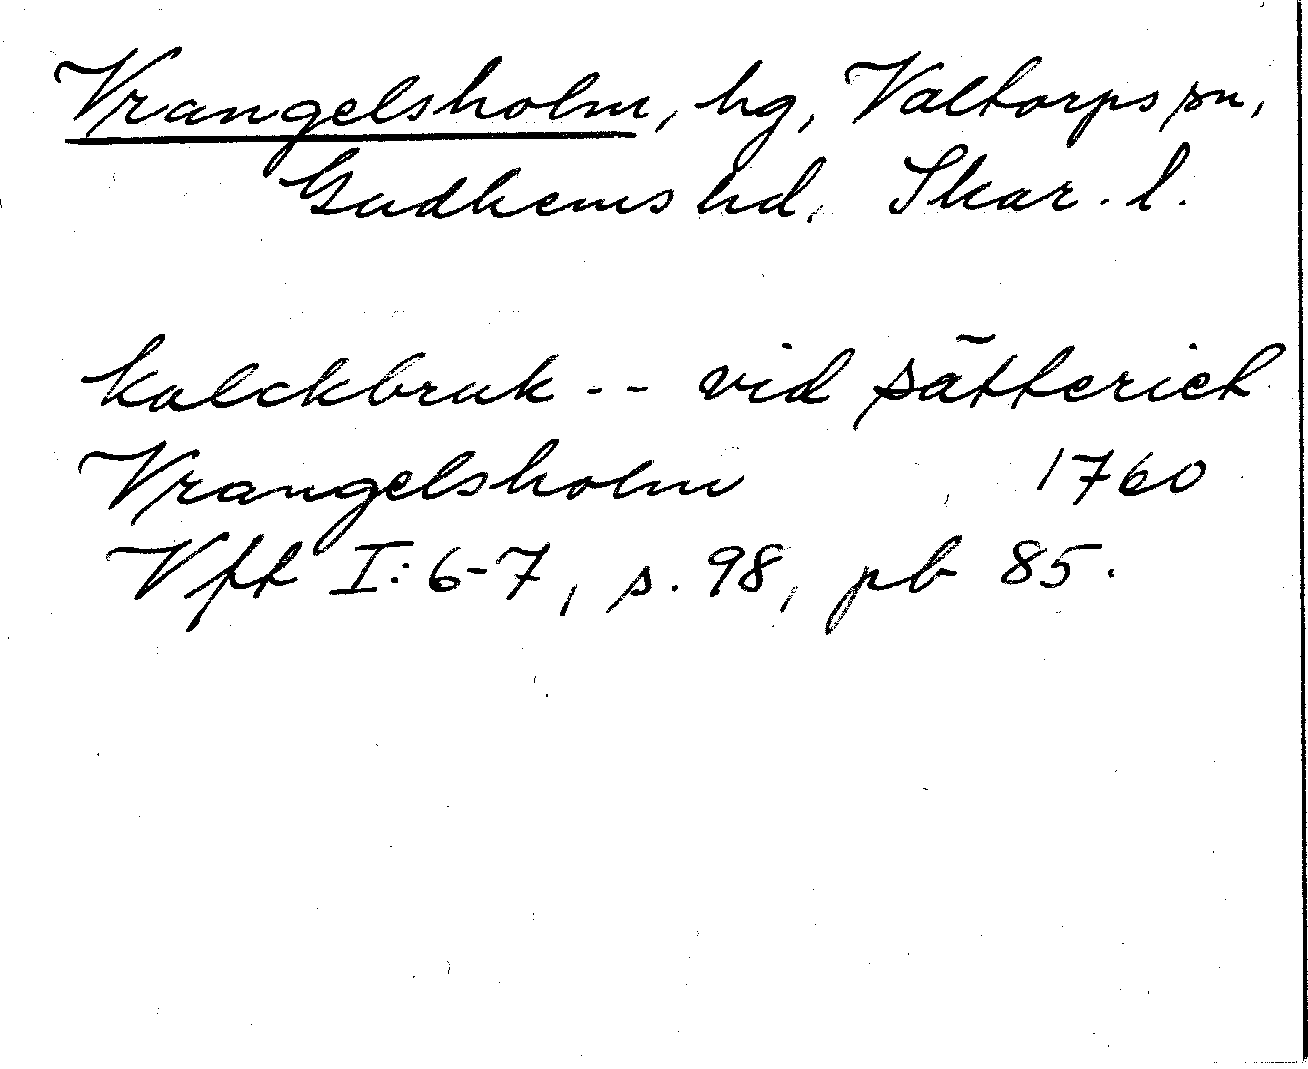 Vrangelsholm, hg, Valtorps sn,
Gudhems hd, Skar. l.
kalckbruk -- vid sätteriet
Vrangelsholm 1760
Vft I:6-7, s. 98, pb 85.